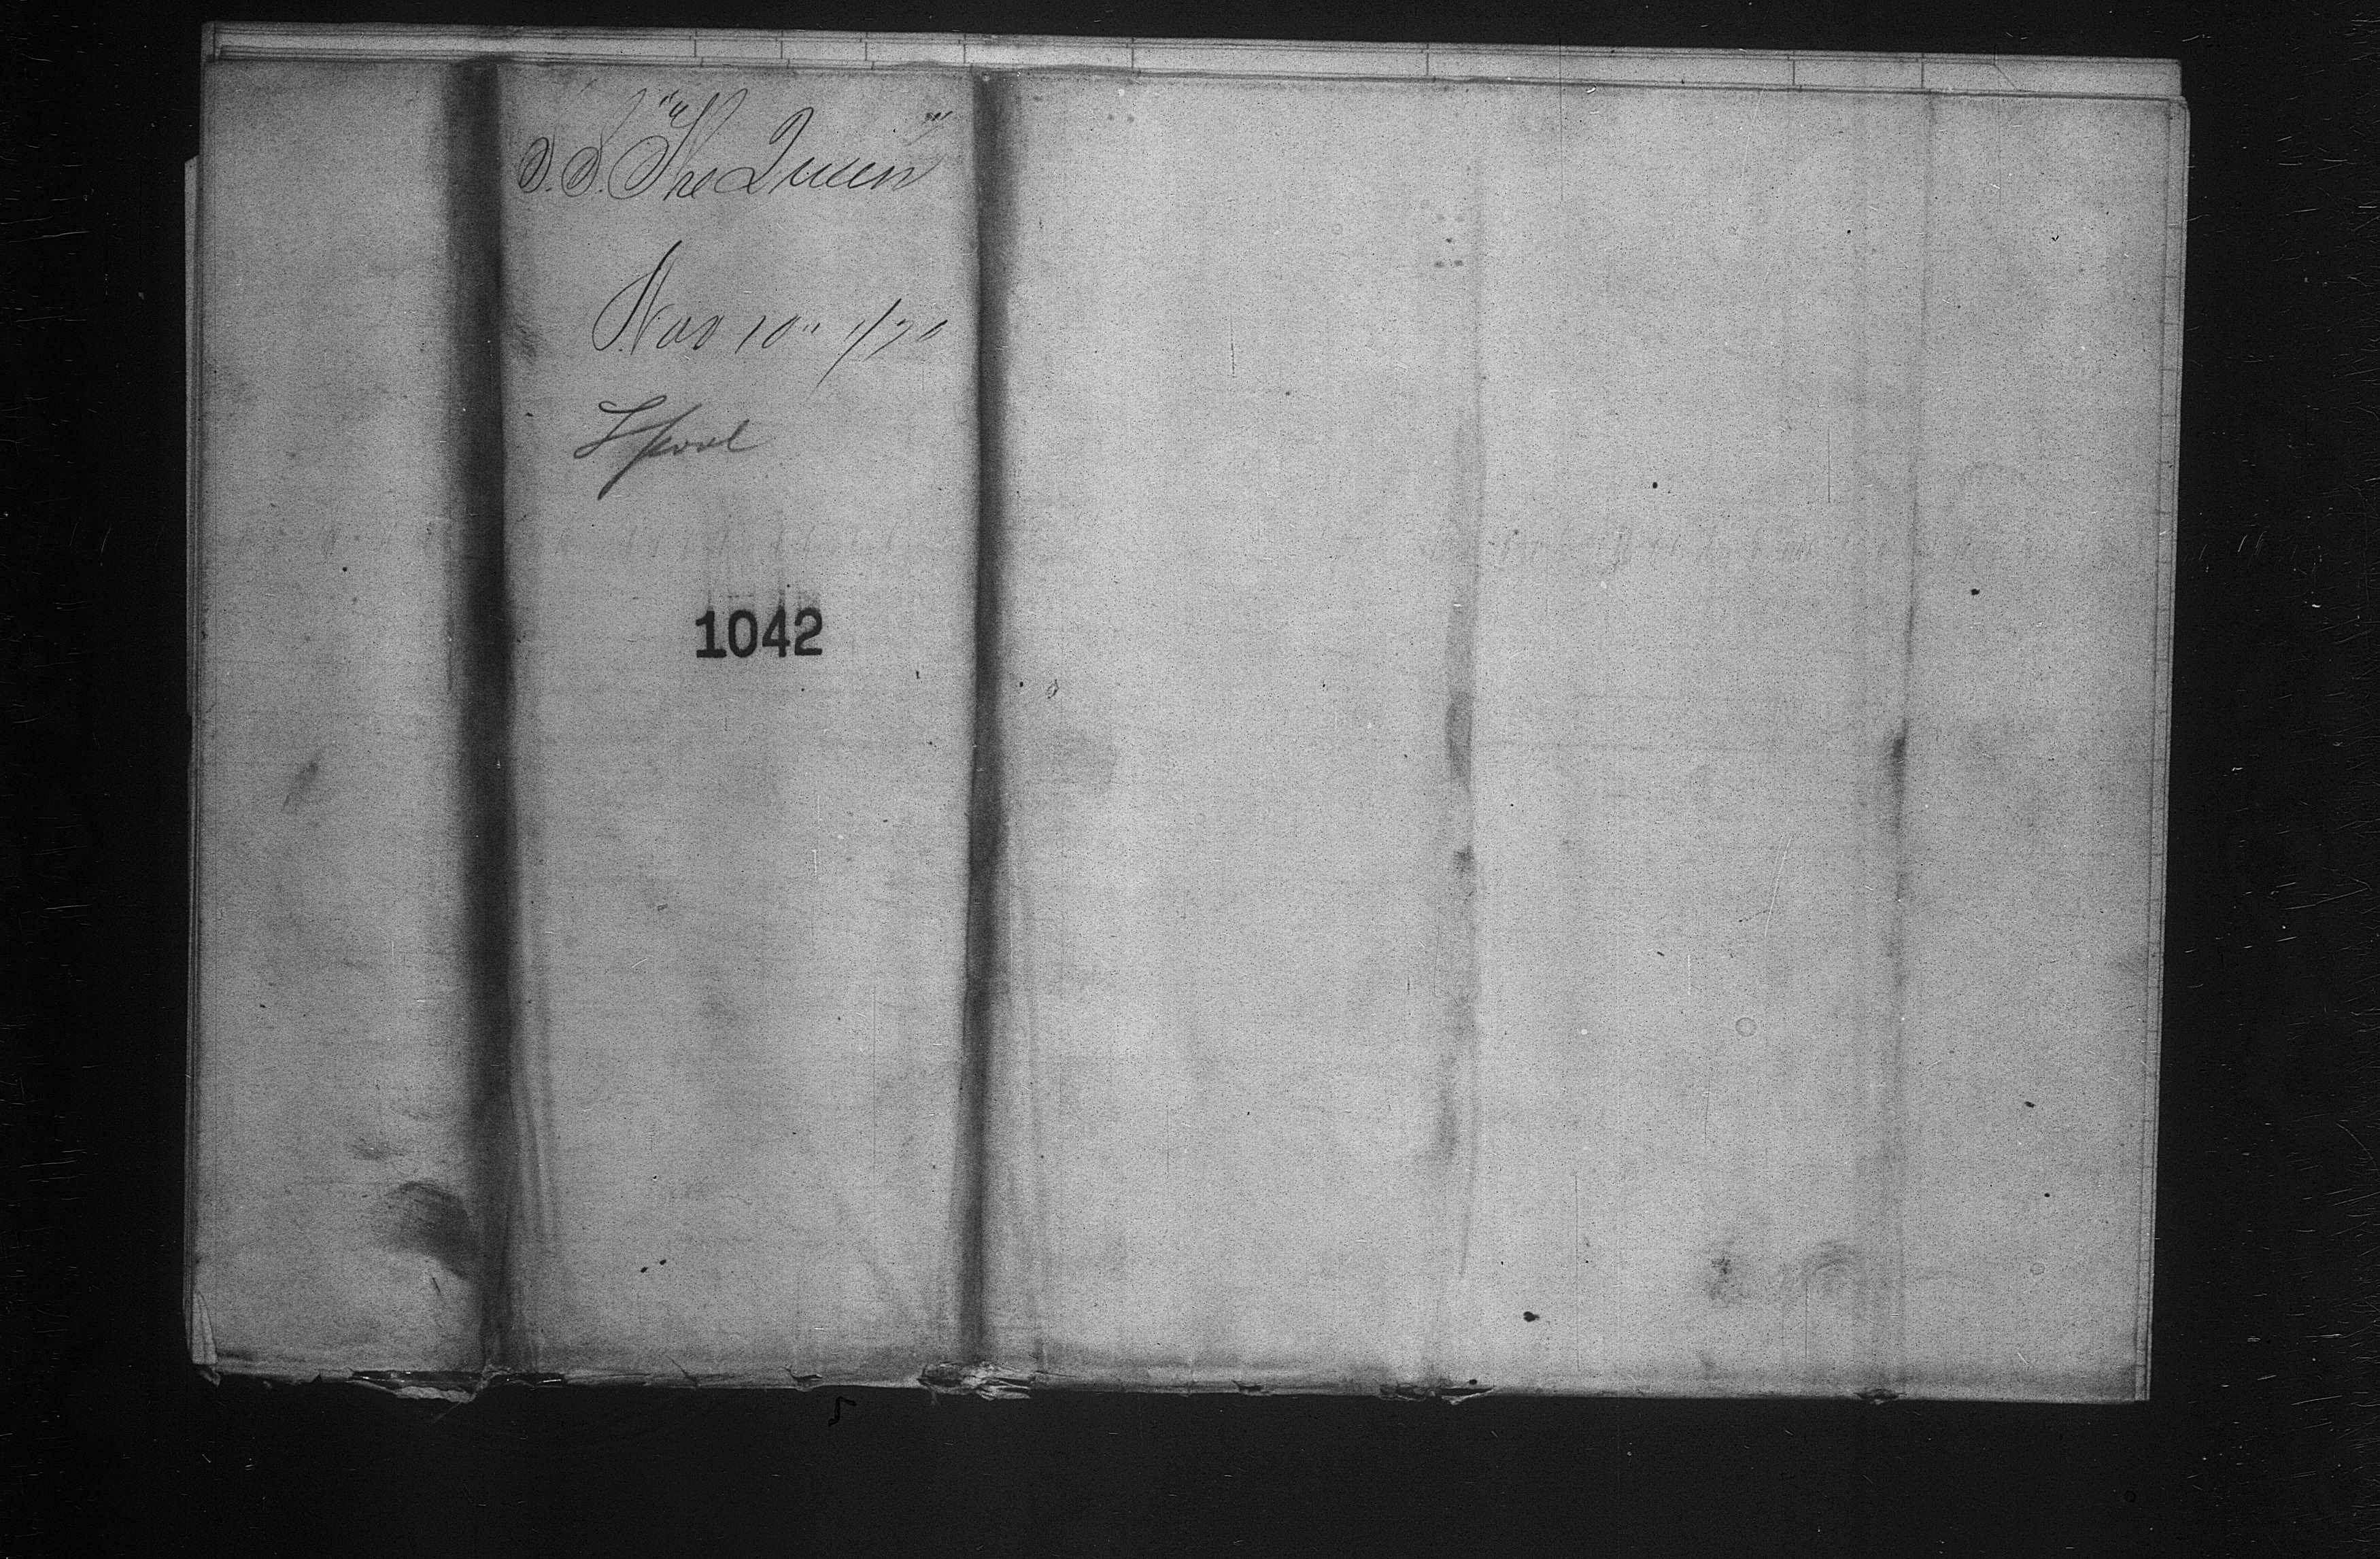 S.S. "The Queen"
Nov 10" 1/70
Lpool
1042